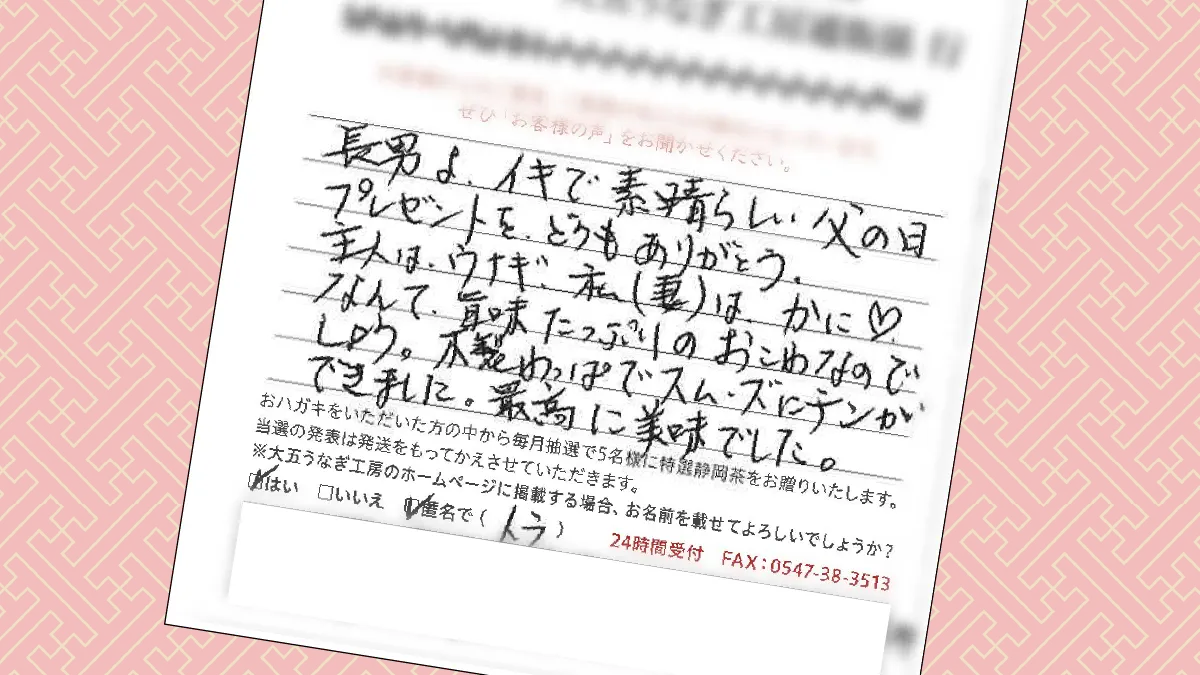 ぜひ「お客様の声」をお聞かせください。
長男よ、イキで素晴らしい父の日
プレゼントを、どうもありがとう。
主人は、ウナギ、私(妻)は、かに♡
なんて、旨味たっぷりのおこわなので
しょう。木製わっぱでスムーズにチンが
できました。最高に美味でした。
おハガキをいただいた方の中から毎月抽選で5名様に特選静岡茶をお贈りいたします。
当選の発表は発送をもってかえさせていただきます。
※大五うなぎ工房のホームページに掲載する場合、お名前を載せてよろしいでしょうか?
☑はい □いいえ ☑匿名で( )
24時間受付 FAX:0547-38-3513